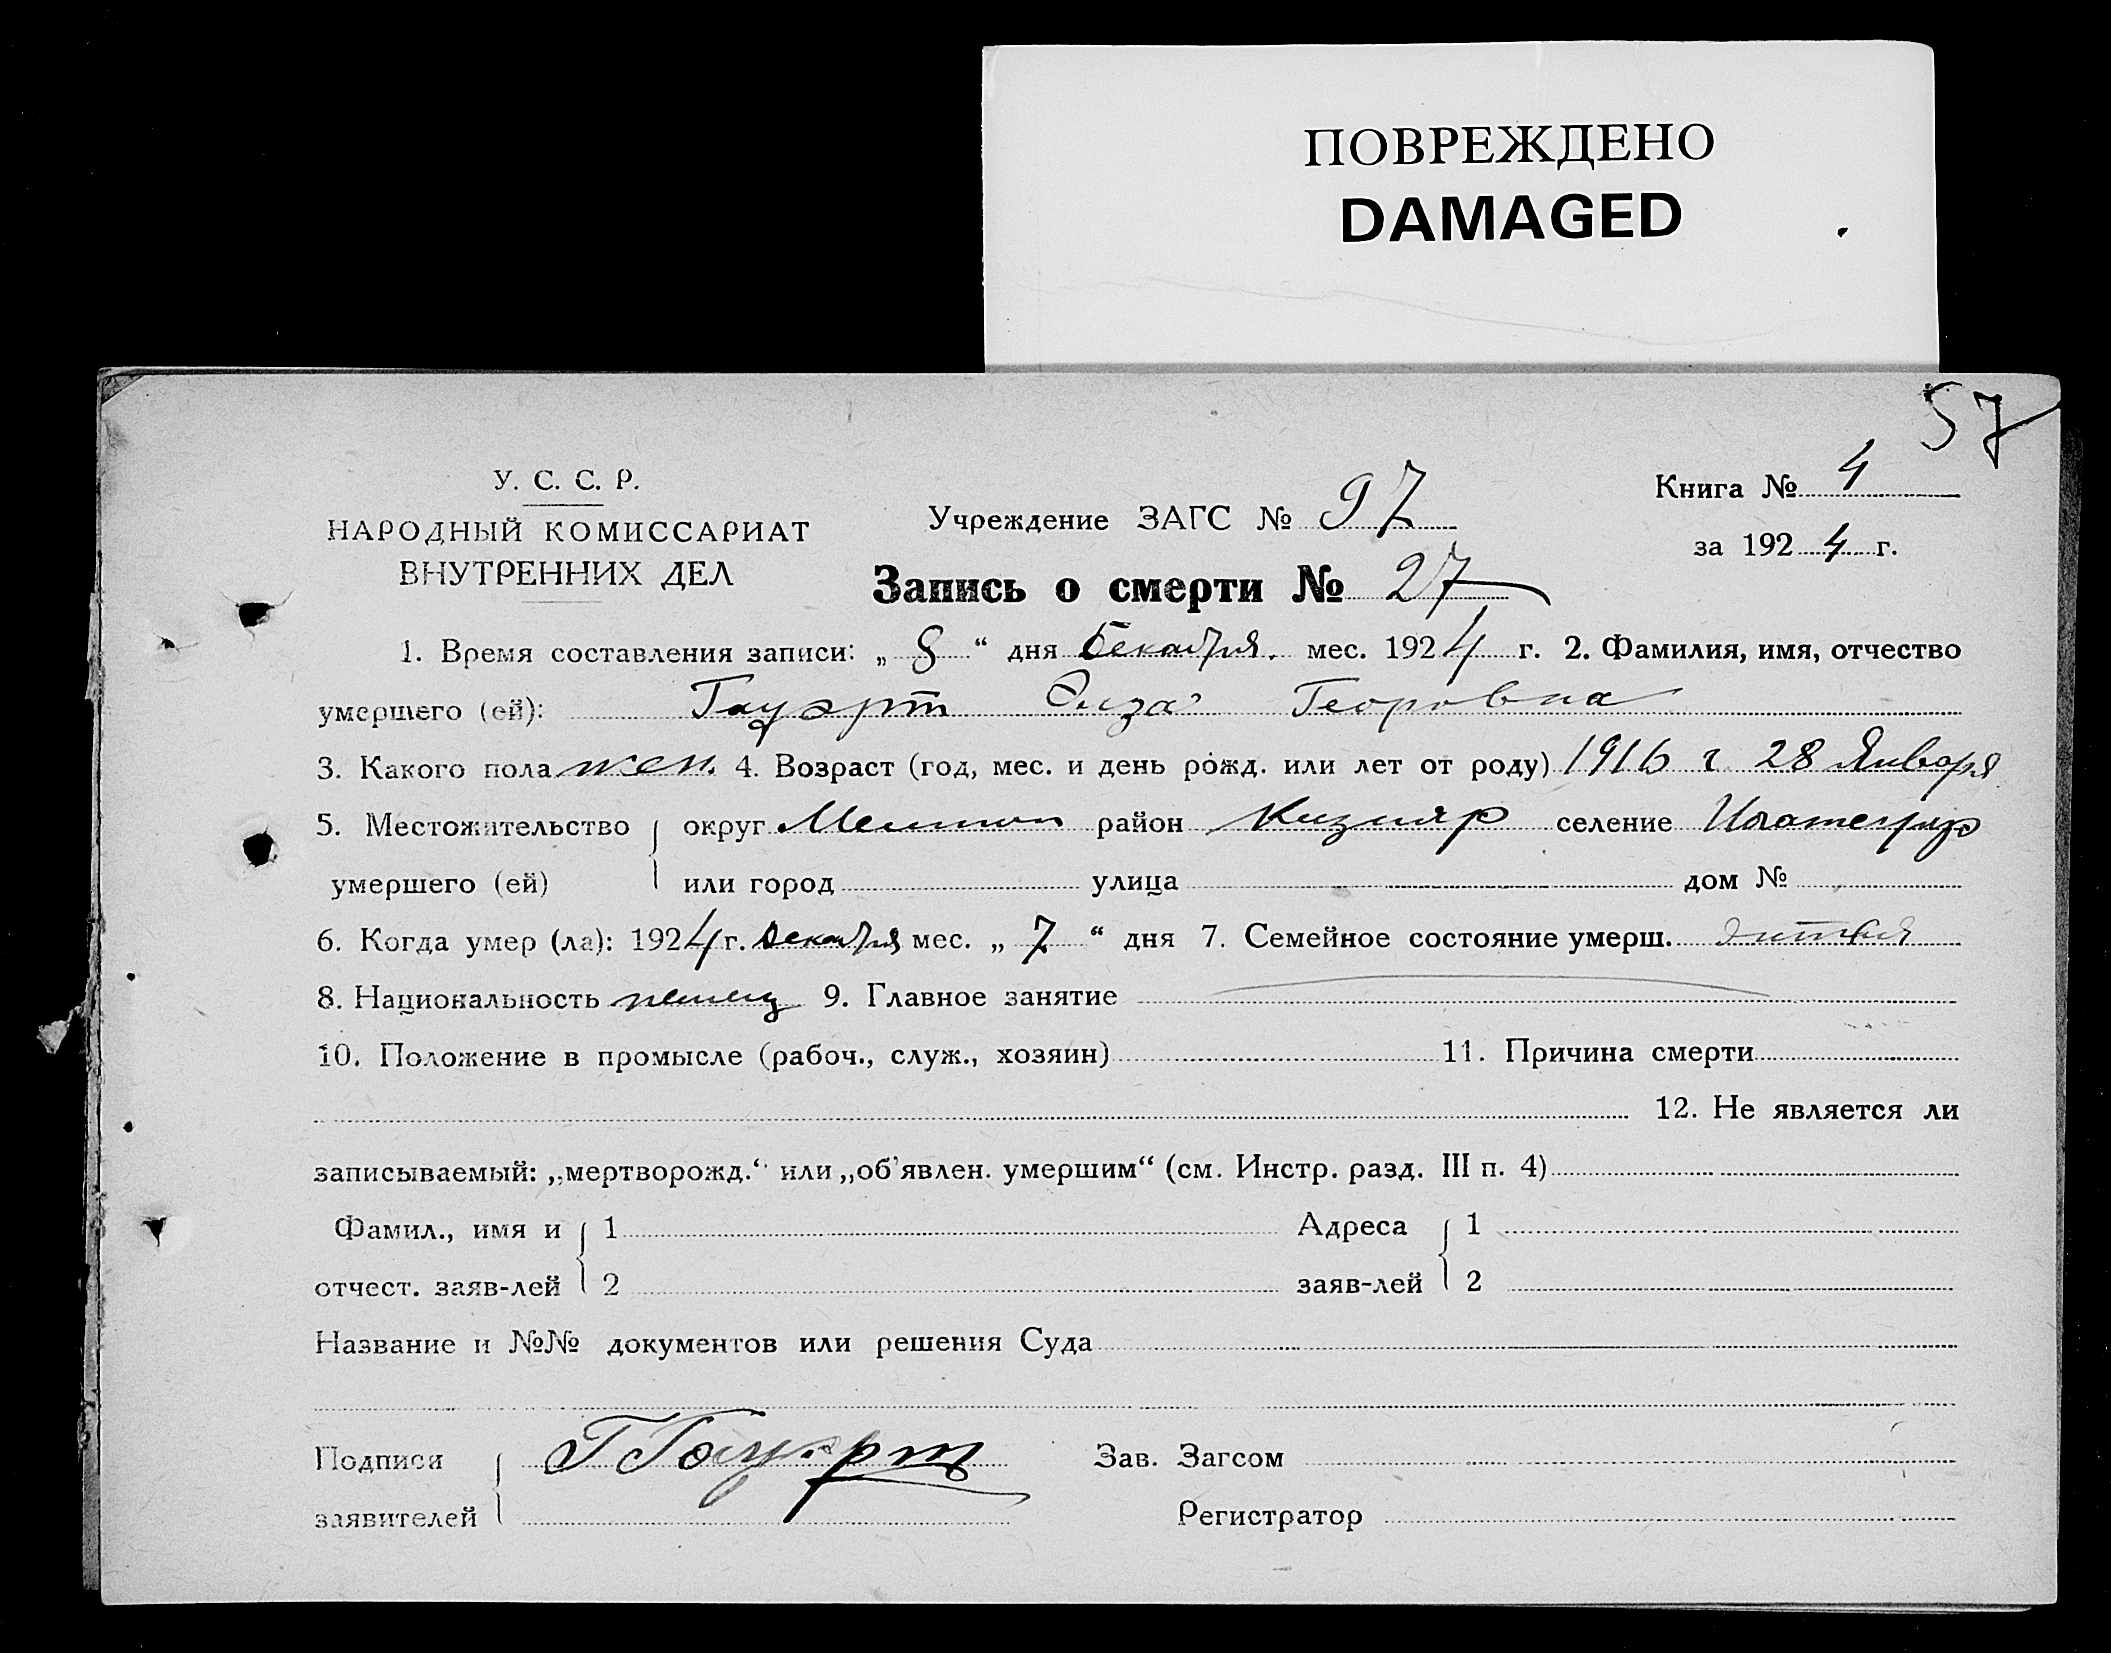 ПОВРЕЖДЕНО
DAMAGED
57
У. С. С. Р.
НАРОДНЫЙ КОМИССАРИАТ
ВНУТРЕННИХ ДЕЛ
Учреждение ЗАГС № 97
Книга № 4
за 1924 г.
Запись о смерти № 27
1. Время составления записи: „ 8 “ дня Декабря. мес. 1924 г. 2. Фамилия, имя, отчество
умершего (ей): Гауэрт Георовна
3. Какого пола жен. 4. Возраст (год, мес. и день рожд. или лет от роду) 1916 г 28 Января
5. Местожительство округ район Кизияр селение
умершего (ей) или город улица дом №
6. Когда умер (ла): 1924 г. Декабря мес. „ 7 “ дня 7. Семейное состояние умерш.
8. Национальность немец 9. Главное занятие
10. Положение в промысле (рабоч., служ., хозяин) 11. Причина смерти
12. Не является ли
записываемый: „мертворожд.“ или „об'явлен. умершим“ (см. Инстр. разд. III п. 4)
Фамил., имя и 1 Адреса 1
отчест. заяв-лей 2 заяв-лей 2
Название и №№ документов или решения Суда
Подписи Г Гауэрт Зав. Загсом
заявителей Регистратор